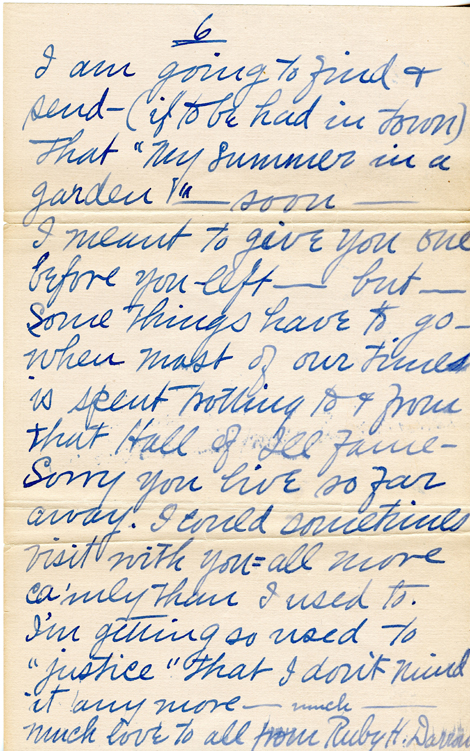 6
I am going to find &
send - (if to be had in town)
that "My Summer in a
garden" — soon —
I meant to give you one
before you left — but —
Some things have to go -
when most of our times
is spent trotting to & from
that Hall of Ill Fame -
Sorry you live so far
away. I could sometimes
visit with you=all more
ca'mly than I used to.
I'm getting so used to
"justice" that I don't mind
it any more — much —
much love to all from Ruby H.